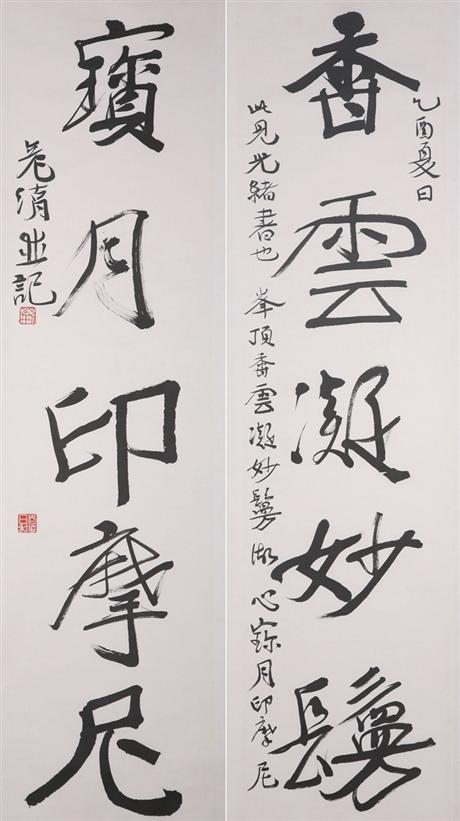 香雲凝妙鬘
乙酉夏日
此見光緒書也 峯頂香雲凝妙鬘 湖心寶月印摩尼
寶月印摩尼
并記